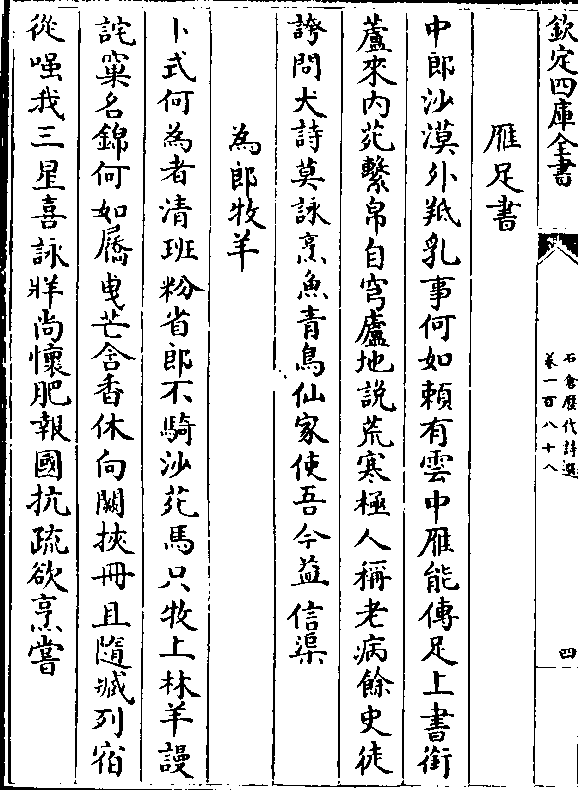 欽定四庫全書
石倉歷代詩選
卷一百八十八
四
雁足書
中郎沙漠外羝乳事何如賴有雲中雁能傳足上書銜
蘆來內苑繫帛自穹廬地說荒寒極人稱老病餘史徒
誇問犬詩莫詠烹魚青鳥仙家使吾今益信渠
為郎牧羊
卜式何為者清班粉省郎不騎沙苑馬只牧上林羊謾
詫窠名錦何如屩曳芒含香休向闕挾冊且隨臧列宿
從嗤我三星喜詠牂尚懷肥報國抗疏欲烹嘗